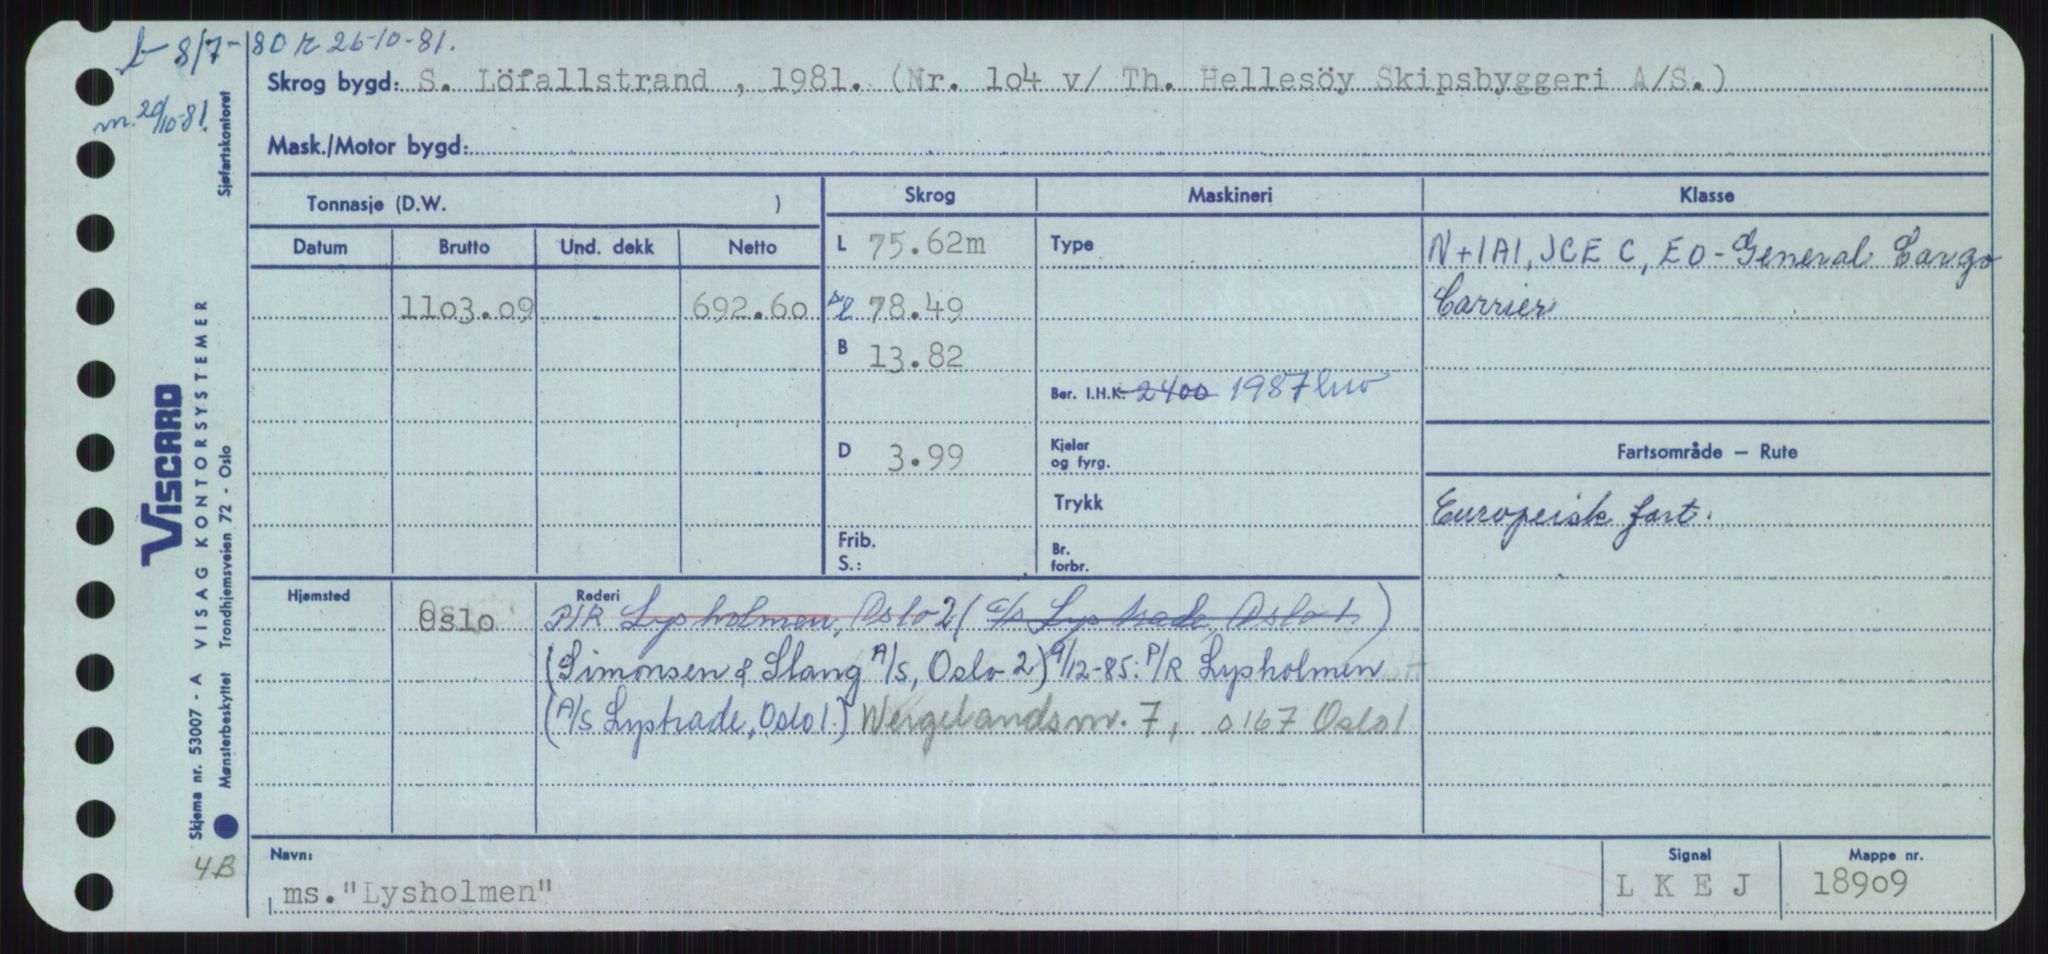 b- 8/7-80 r 26-10-81.
m. 20/10-81.
Skrog bygd: S. Löfallstrand , 1981. (Nr. 1o4 v/ Th. Hellesöy Skipsbyggeri A/S.)
Mask./Motor bygd:
Tonnasje (D.W. )
Skrog
Maskineri
Klasse
Datum
Brutto
Und. dekk
Netto
11o3.o9
692.6o
L 75.62m
78.49
B 13.82
D 3.99
Frib.
S.:
Type
Ber. I.H.K. 2400 1987
Kjeler
og fyrg.
Trykk
Br.
forbr.
N+1A1, ICE C, EO - General Cargo
Carrier
Fartsområde – Rute
Europeisk fart.
Hjemsted
Oslo
Rederi
P/R Lysholmen, Oslo 2 (A/S Lystrade, Oslo 1.)
(Simonsen & Slang A/S, Oslo 2) 9/12-85: P/R Lysholmen
(A/S Lystrade, Oslo 1.) Wergelandsv. 7, 0167 Oslo 1
Navn:
ms."Lysholmen"
Signal
L K E J
Mappe nr.
189o9
VISCARD
VISAG KONTORSYSTEMER
Trondhjemsveien 72 - Oslo
Skjema nr. 53007 - A
Mønsterbeskyttet
Sjøfartskontoret
4B